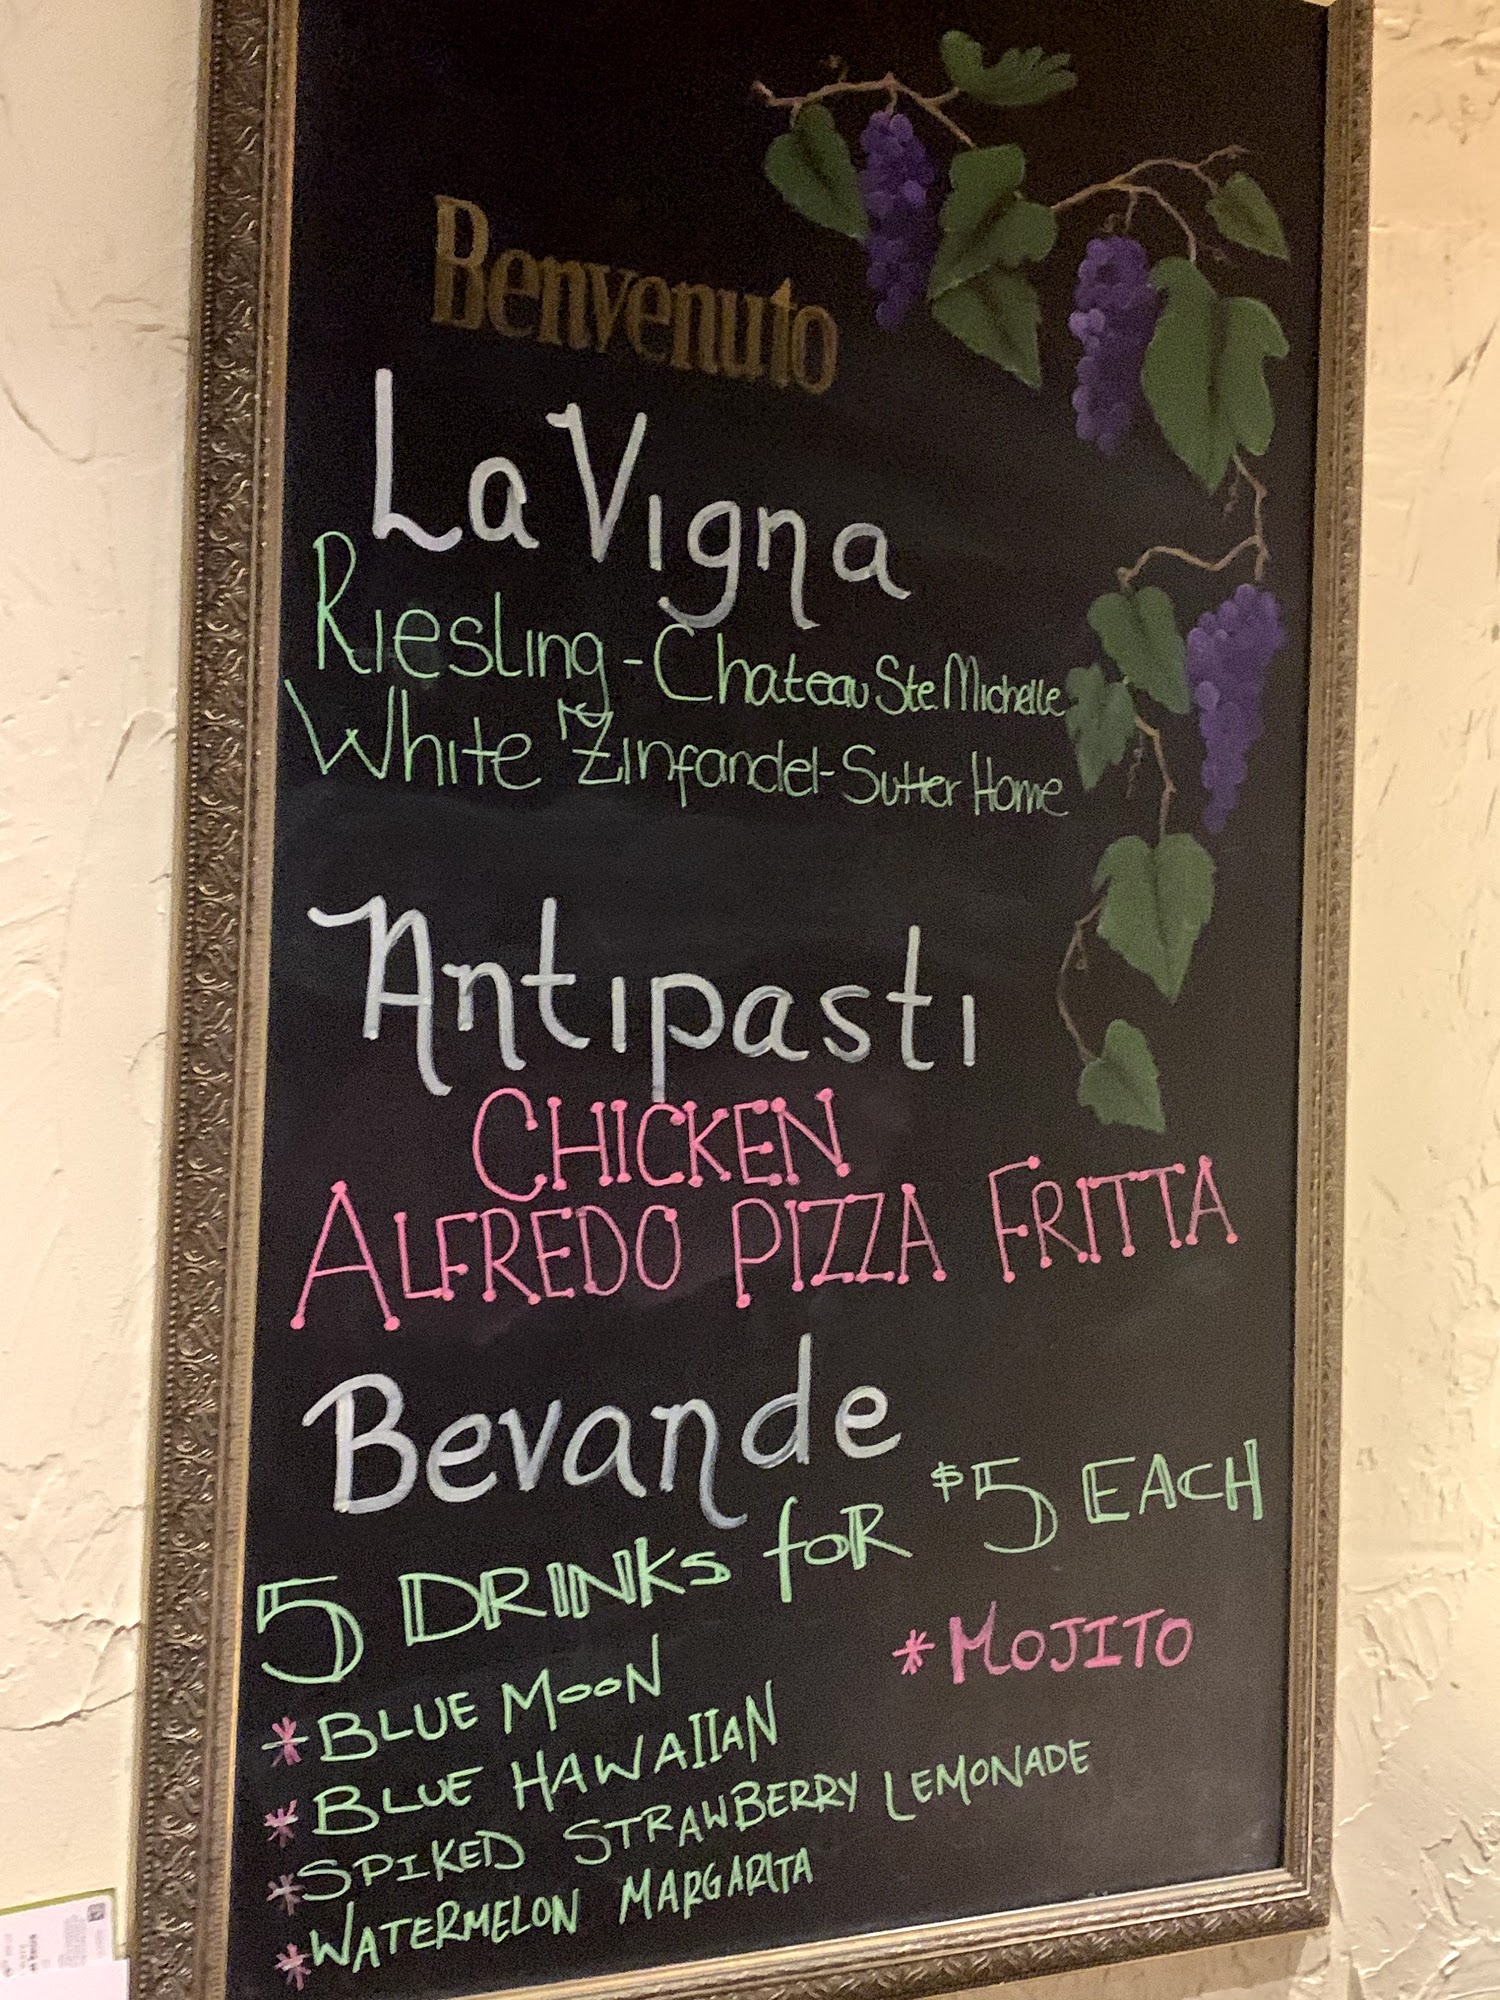 Benvenuto
La Vigna
Riesling - Chateau Ste. Michelle
White Zinfandel - Sutter Home
Antipasti
CHICKEN
ALFREDO PIZZA FRITTA
Bevande
5 DRINKS foR $5 EACH
*BLUE MOON
*MOJITO
*BLUE HAWAIIAN
*SPIKED STRAWBERRY LEMONADE
*WATERMELON MARGARITA